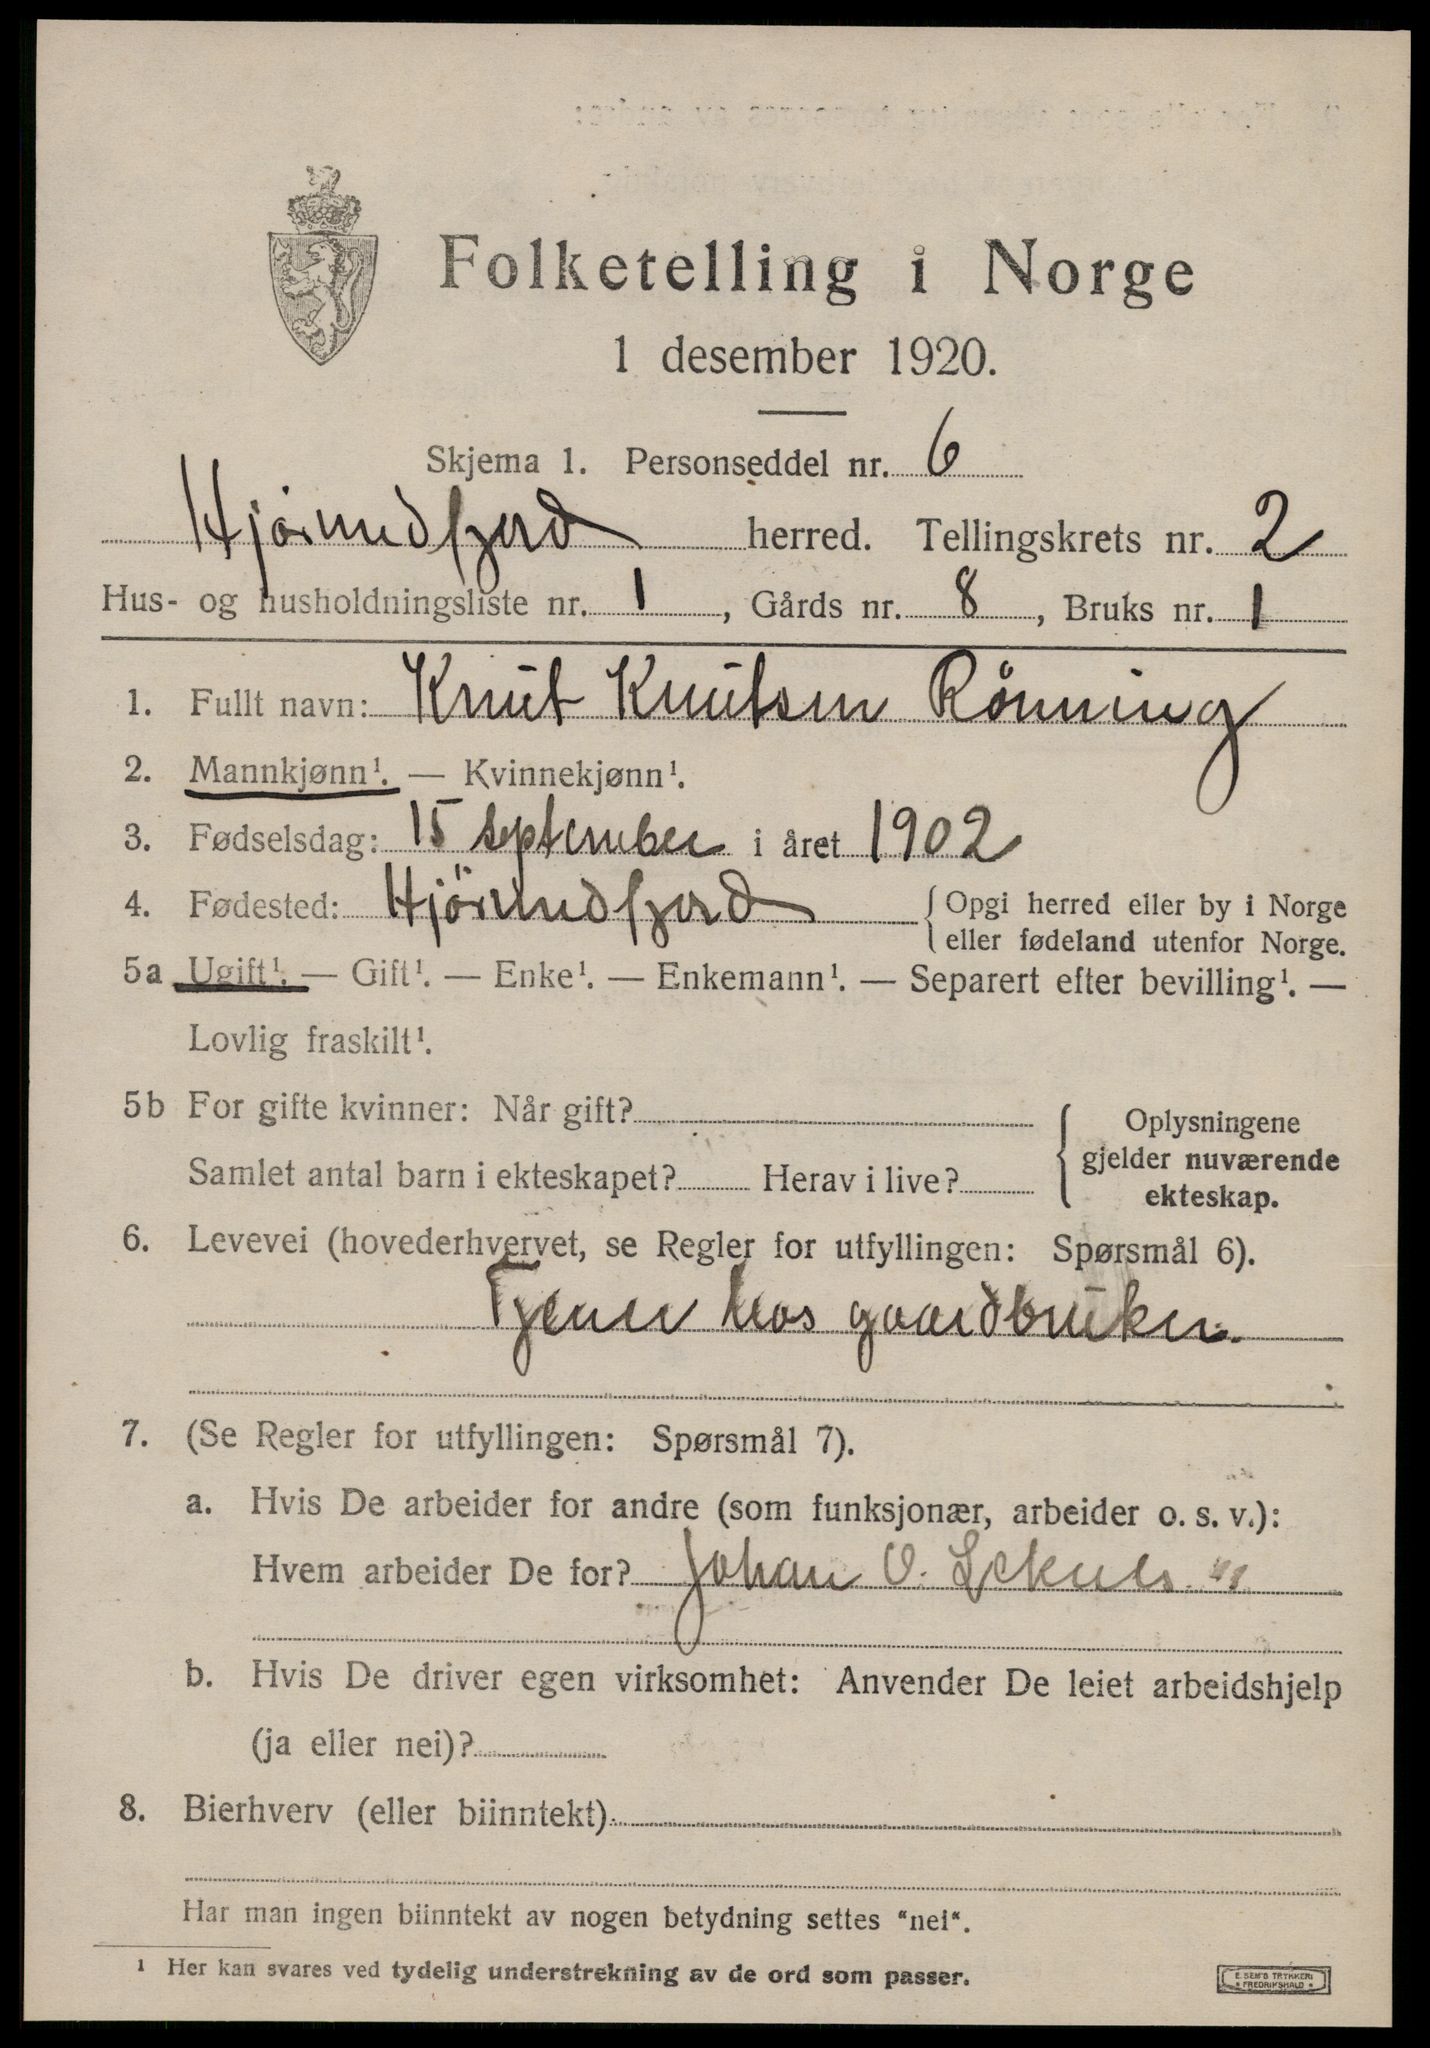 Folketelling i Norge
1 desember 1920.
Skjema 1. Personseddel nr. 6
Hjørundfjord herred. Tellingskrets nr. 2
Hus- og husholdningsliste nr. 1, Gårds nr. 8, Bruks nr. 1
1. Fullt navn: Knut Knutsen Rönning
2. Mannkjønn¹. — Kvinnekjønn¹.
3. Fødselsdag: 15 september i året 1902
4. Fødested: Hjörundfjord {Opgi herred eller by i Norge
eller fødeland utenfor Norge.
5a Ugift¹. — Gift¹. — Enke¹. — Enkemann¹. — Separert efter bevilling¹. —
Lovlig fraskilt¹.
5b For gifte kvinner: Når gift?
Samlet antal barn i ekteskapet? Herav i live?
Oplysningene
gjelder nuværende
ekteskap.
6. Levevei (hovederhvervet, se Regler for utfyllingen: Spørsmål 6).
Tjener hos gaardbruker.
7. (Se Regler for utfyllingen: Spørsmål 7).
a. Hvis De arbeider for andre (som funksjonær, arbeider o. s. v.):
Hvem arbeider De for? Johan O.
b. Hvis De driver egen virksomhet: Anvender De leiet arbeidshjelp
(ja eller nei)?
8. Bierhverv (eller biinntekt)
Har man ingen biinntekt av nogen betydning settes "nei".
¹ Her kan svares ved tydelig understrekning av de ord som passer.
E. SEM'S TRYKKERI
FREDRIKSHALD